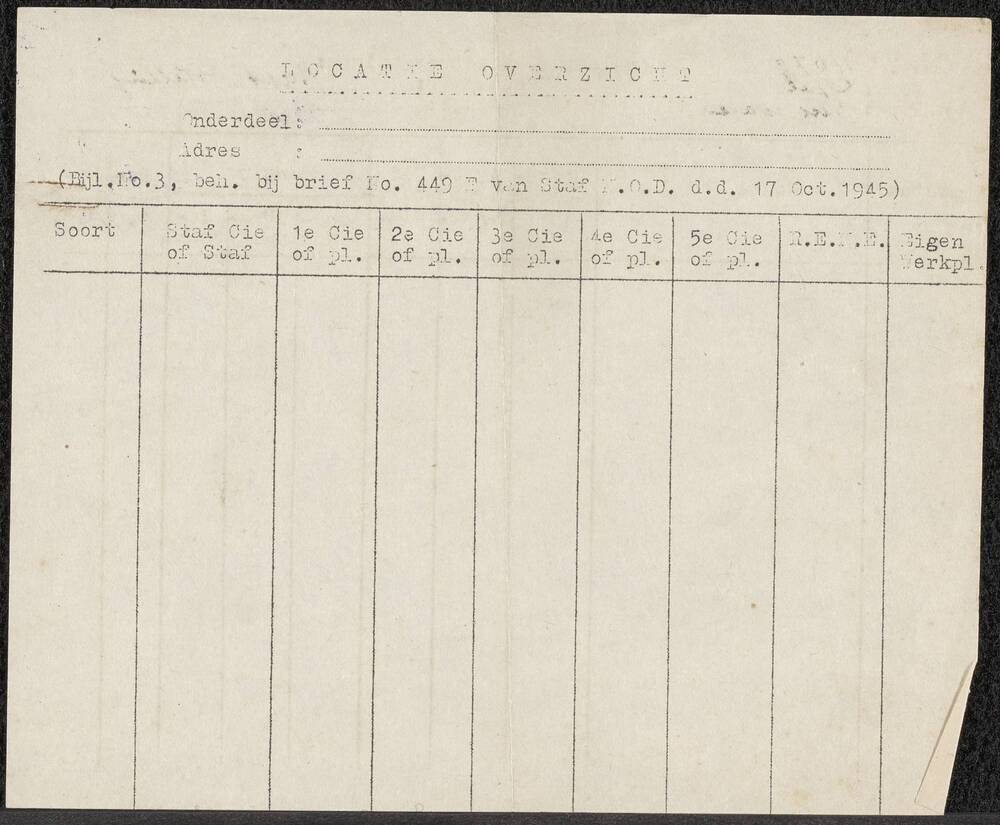 LOCATIE OVERZICHT
Onderdeel:
Adres :
(Bijl.No.3, beh. bij brief No. 449 E van Staf M.O.D. d.d. 17 Oct.1945)
Soort Staf Cie 1e Cie 2e Cie 3e Cie 4e Cie 5e Cie R.E.M.E. Eigen
of Staf of pl. of pl. of pl. of pl. of pl. Werkpl.